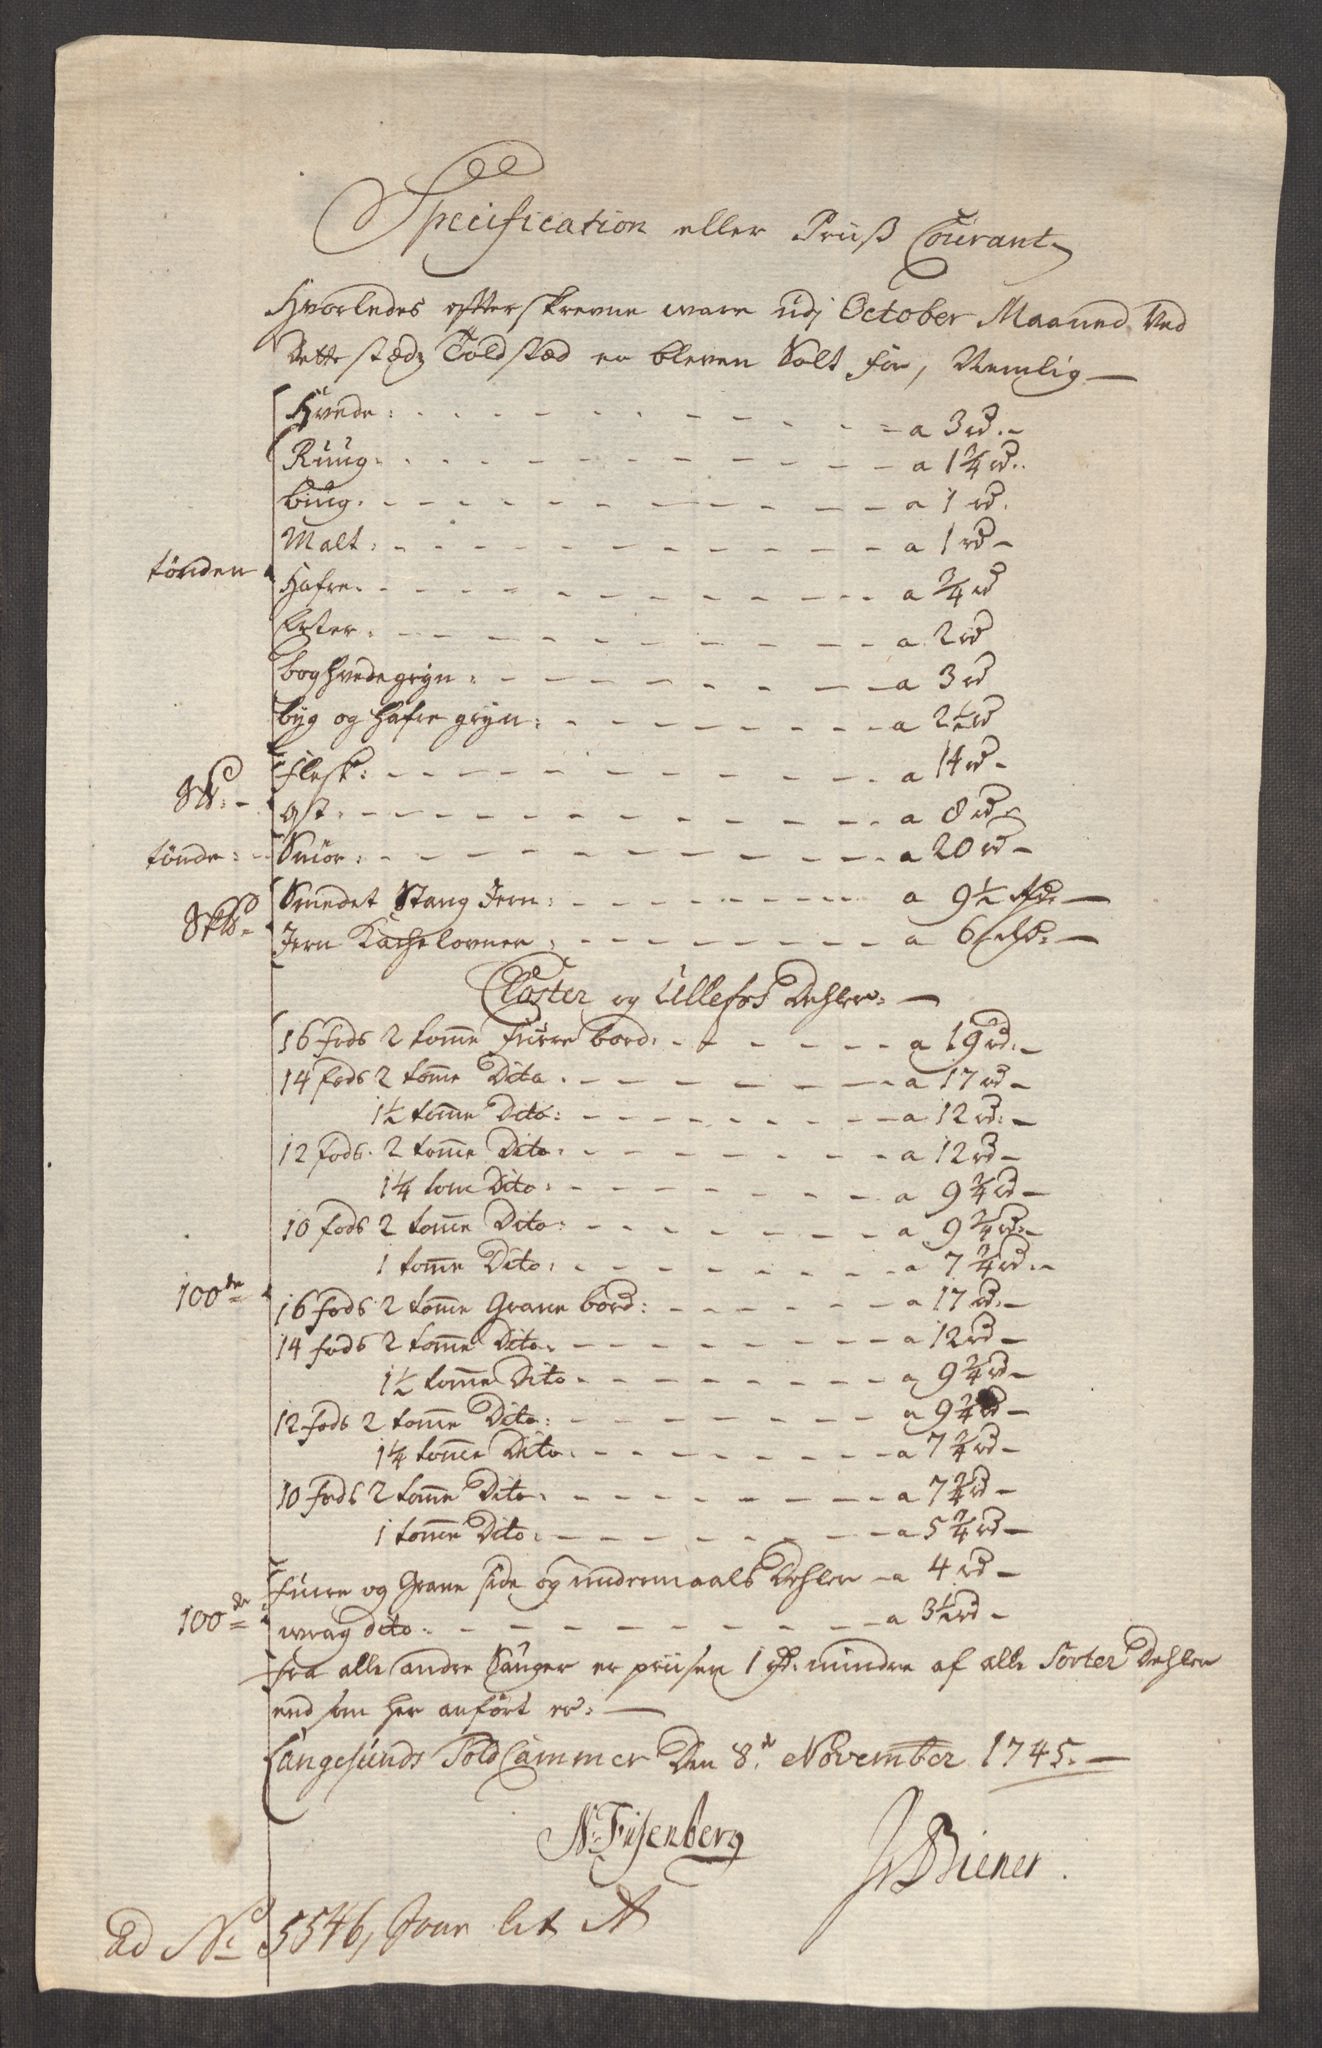 Specification eller Priiß Courant
Hvorledes efterskrevne ware udj October Maaned Ved
Dette stædz Toldstæd er bleven Solt for, Nemlig
Hvede: a 3 rd.
Rüug. a 1 3/4 rd.
büg. a 1 rd.
Malt: a 1 rd
tönden
Hafre. a 3/4 rd
Erter: a 2 rd
boghvedegryn: a 3 rd
byg og Hafre gryn: a 2 1/2 rd
Flesk: a 14 rd
ost. a 8 rd
tönde: Smör: a 20 rd
Smedet Stang Jern: a 9 1/2 rd
Jern Kachelovner: a 6 rd
Closter og Ullefos Dehler:
16 fods 2 tomme Furre bord: a 19 rd.
14 fods 2 tomme Dito. a 17 rd
1 1/2 tomme Dito: a 12 rd:
12 fods 2 tomme Dito: a 12 rd
1 1/4 tome Dito: a 9 3/4 rd
10 fods 2 tomme Dito: a 9 3/4 rd:
1 tomme Dito: a 7 3/4 rd.
100de
16 fods 2 tomme Grane bord: a 17 rd.
14 fods 2 tomme Dito. a 12 rd
1 1/2 tomme Dito a 9 3/4 rd
12 fods 2 tomme Dito: a 9 3/4 rd
1 1/4 tomme Dito: a 7 3/4 rd
10 fods 2 tomme Dito. a 7 3/4 rd
1 tomme Dito. a 5 3/4 rd
Furre og Grane side og undermaals Dehler a 4 rd
100de wrag dito. a 3 1/2 rd
fra alle andre Sauger er priisen 1 rd. mindre af alle Sorter Dehler
end som her anfört er:
Langesunds Told Cammer Den 8de November 1745.
JBiener.
Ad No 5546, lit A